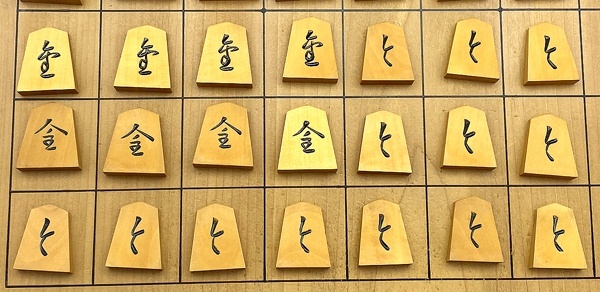 金 金 金 金 と と と
全 全 全 全 と と と
と と と と と と と